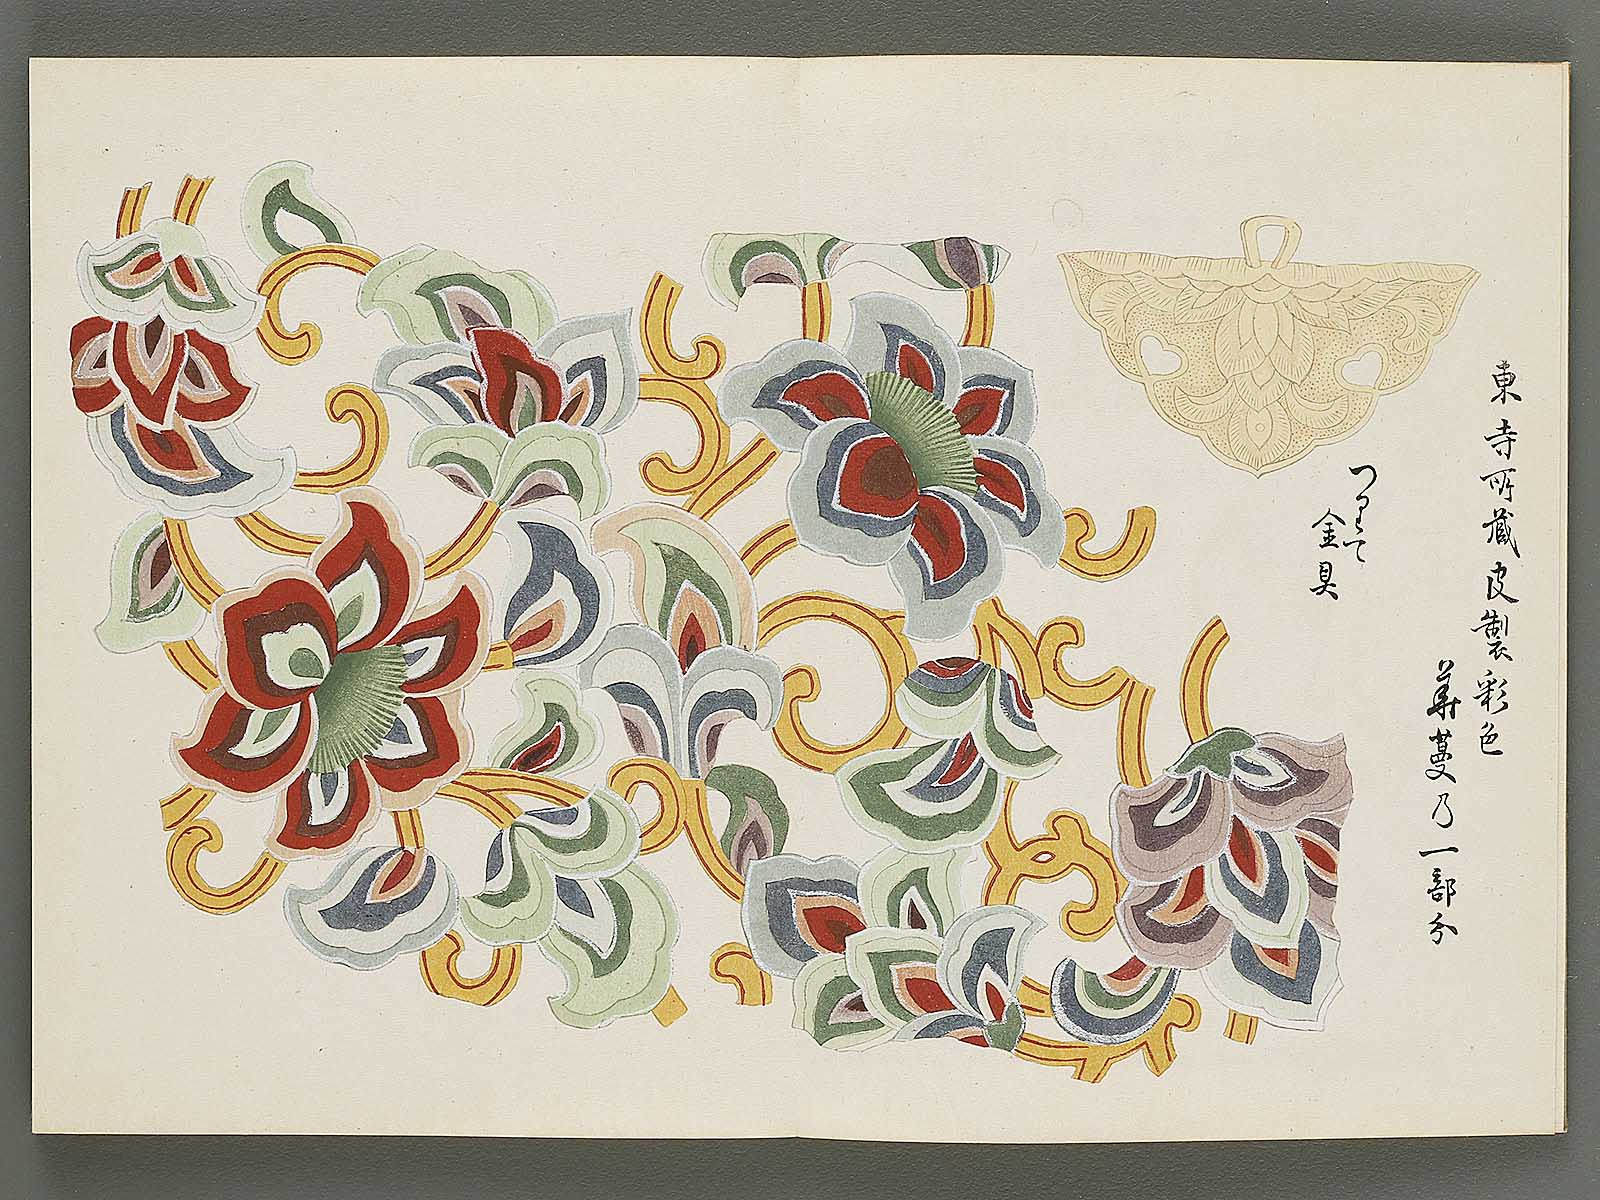 東寺所蔵皮製彩色
華蔓乃一部分
つりて
金具